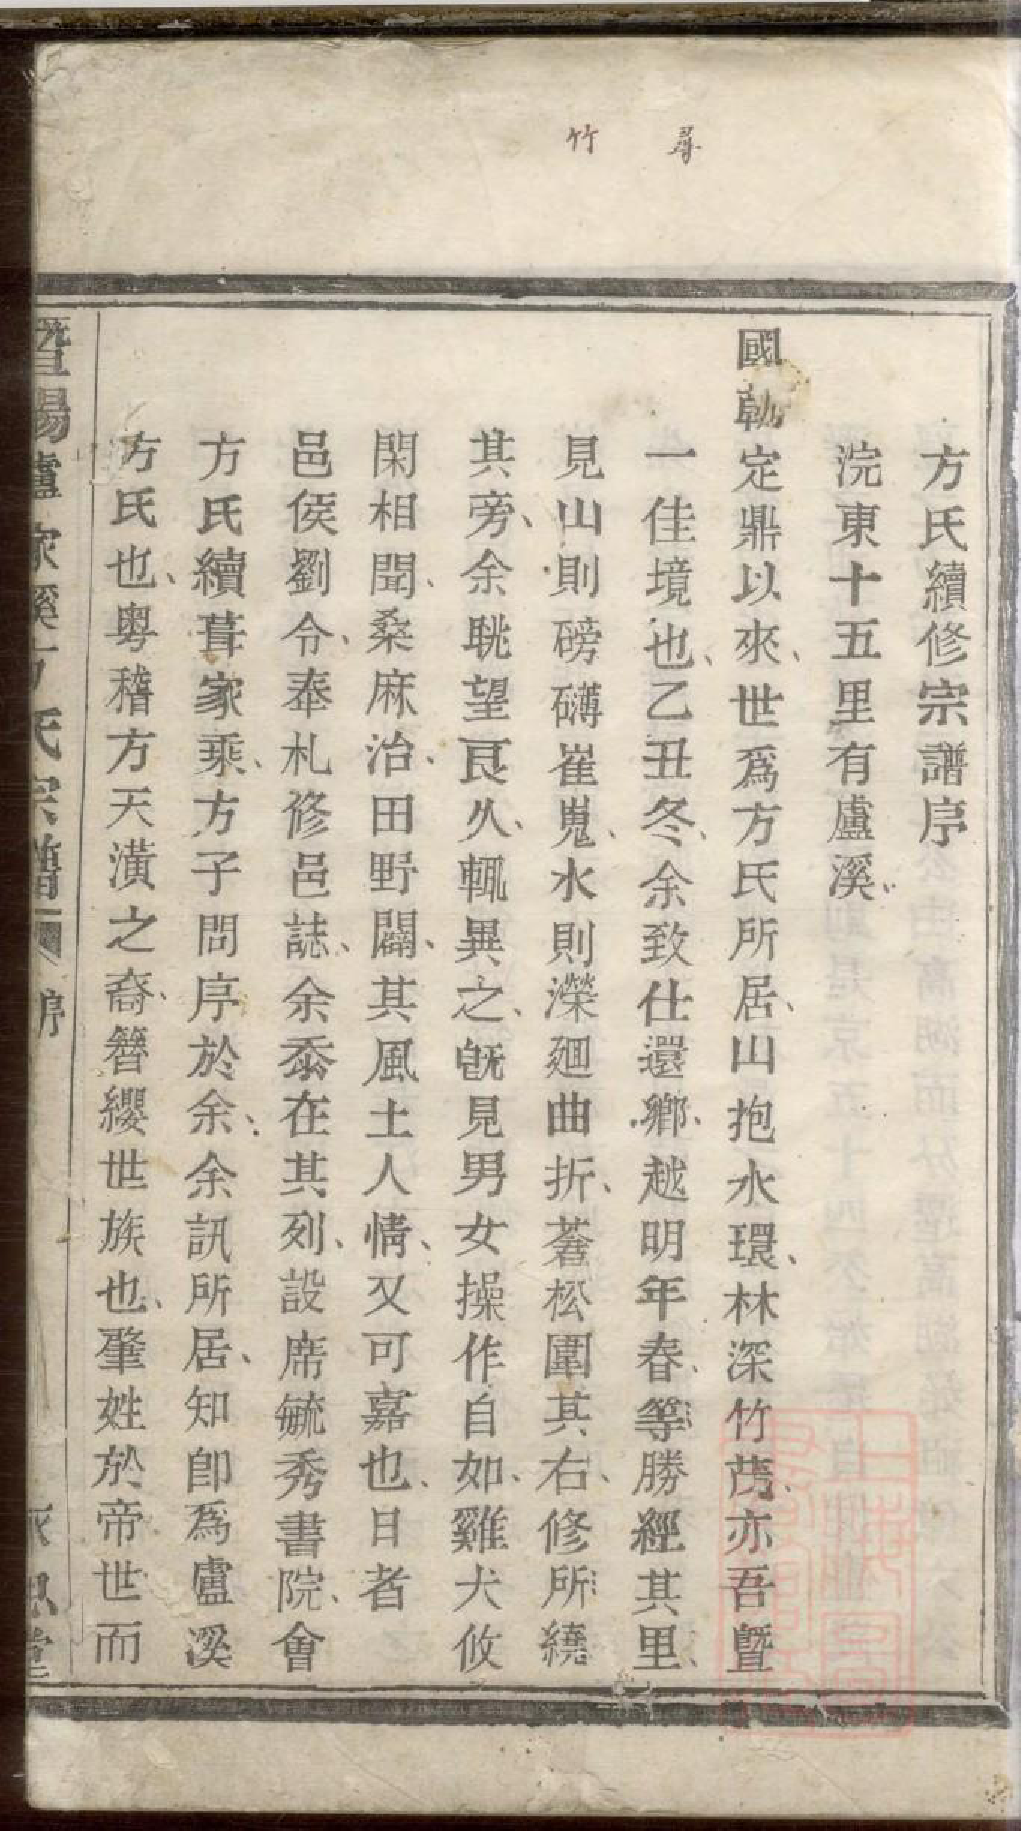 尋竹
方氏續修宗譜序
浣東十五里有盧溪、
國朝定鼎以來、世爲方氏所居、山抱水環、林深竹茂、亦吾曁
一佳境也、乙丑冬、余致仕還鄉、越明年春、等勝經其里、
見山則磅礴崔嵬、水則濚廻曲折、蒼松圍其右、修所繞
其旁、余眺望良久、輒異之、旣見男女操作自如、雞犬攸
閑相聞、桑麻治、田野闢、其風土人情、又可嘉也、日者
邑侯劉令、奉札修邑誌、余忝在其列、設席毓秀書院、會
方氏續葺家乘、方子問序於余、余訊所居、知卽爲盧溪
方氏也、粵稽方天潢之裔、簪纓世族也、肇姓於帝世而
暨陽盧家溪方氏宗譜 序